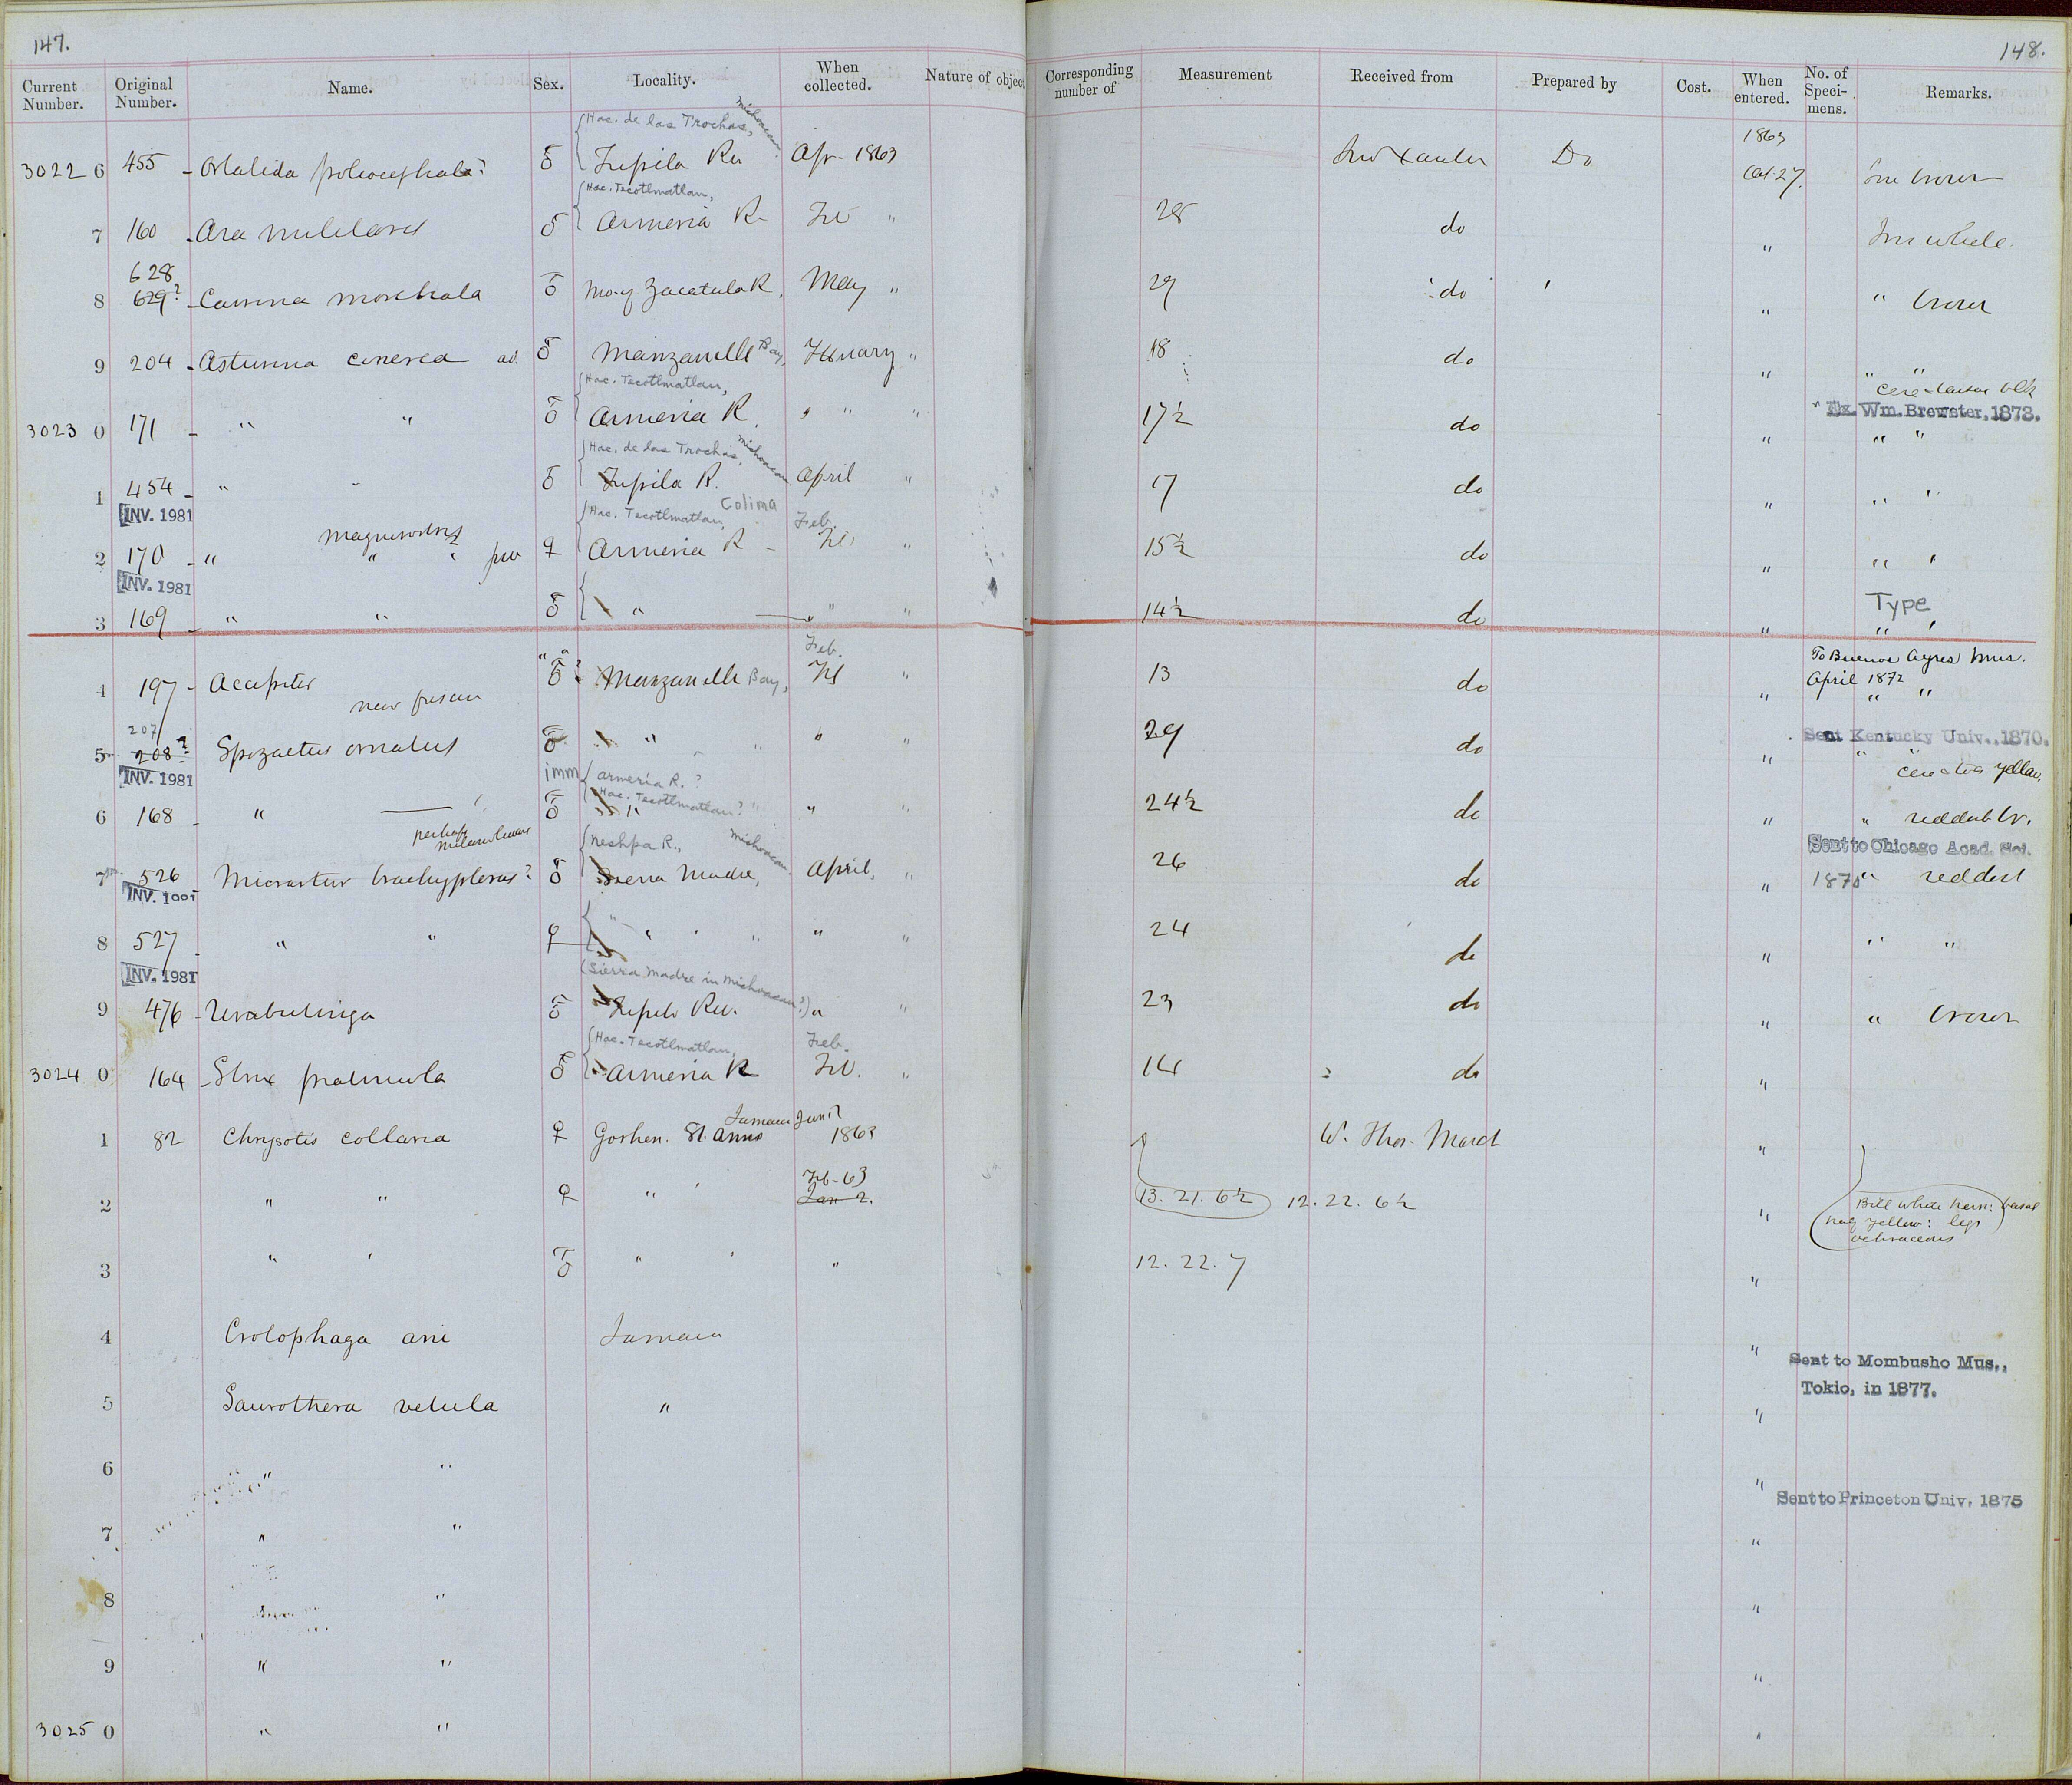 147.
148.
Current Number. Original Number. Name. Sex. Locality. When collected. Nature of object Corresponding number of Measurement Received from Prepared by Cost. When entered. No. of Speci- mens. Remarks.
Hac. de las Trochas, Michoacan 1863
3022 6 455 - Ortalida poliocephala? ♂ Apr. 1863 Do Oct. 27.
Hac. Tecotlmatlan,
7 160 - Ara militaris ♂ Armeria R. " 28 do "
628
8 629? - Cairina moschata ♂ Zacatula R. May " 29 do " "
9 204 - Asturina cinerea ad. ♂ Manzanillo Bay, " 18 do " " "
Hac. Tecotlmatlan,
Ex. Wm. Brewster, 1873.
3023 0 171 - " " ♂ Armeria R. " " 17½ do " " "
Hac. de las Trochas, Michoacan
1 454 - " " ♂ Tupila R. April " 17 do " " "
INV. 1981 Hac. Tecotlmatlan, Colima Feb.
magnirostris
2 170 - " " " ♀ Armeria R - " 15½ do " " "
INV. 1981 Type
3 169 - " " ♂ " " " 14½ do " " "
Feb. To Buenos Ayres Mus.
April 1872
4 197 - " " ♂ ? Manzanillo Bay, Feb " 13 do " " "
new
207
5 208? Spizaetus ornatus ♂ " " " " 29 do " Sent Kentucky Univ., 1870.
INV. 1981 imm Armeria R. ? yellow,
Hac. Tecotlmatlan? "
6 168 - " ♂ " " " 24½ do " "
perhaps
Neshpa R., Michoacan Sent to Chicago Acad. Sci.
7 526 Micrastur brachypterus? ♂ Sierra Madre, April, " 26 do " 1875 "
INV.
8 527 - " " ♀ " " " " " 24 do " " "
INV. 1981 (Sierra Madre in Michoacan?)
9 476 - Urubitinga ♂ " " 23 do " "
Hac. Tecotlmatlan, Feb.
3024 0 164 - Strix pratincola ♂ Armeria R Feb. " 14 do "
Jamaica Jan.?
1 82 Chrysotis collaria ♀ Goshen. St. Anns 1863 W. Thos. March "
Feb-63
2 " " ♀ " " Jan 2. 13. 21. 6½ 12. 22. 6½ " Bill white horn: basal
half yellow: legs
ochraceous
3 " " ♂ " " " 12. 22. 7 "
4 Crotophaga ani Jamaica "
Sent to Mombusho Mus.,
Tokio, in 1877.
5 Saurothera vetula " "
6 " " "
Sent to Princeton Univ. 1875
7 " " "
8 " "
9 " " "
3025 0 " " "